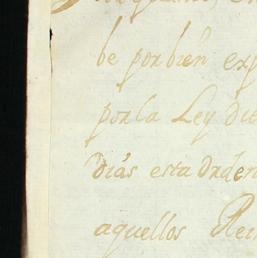 be por bien exp
por la Ley die
dias esta orden
aquellos Rei